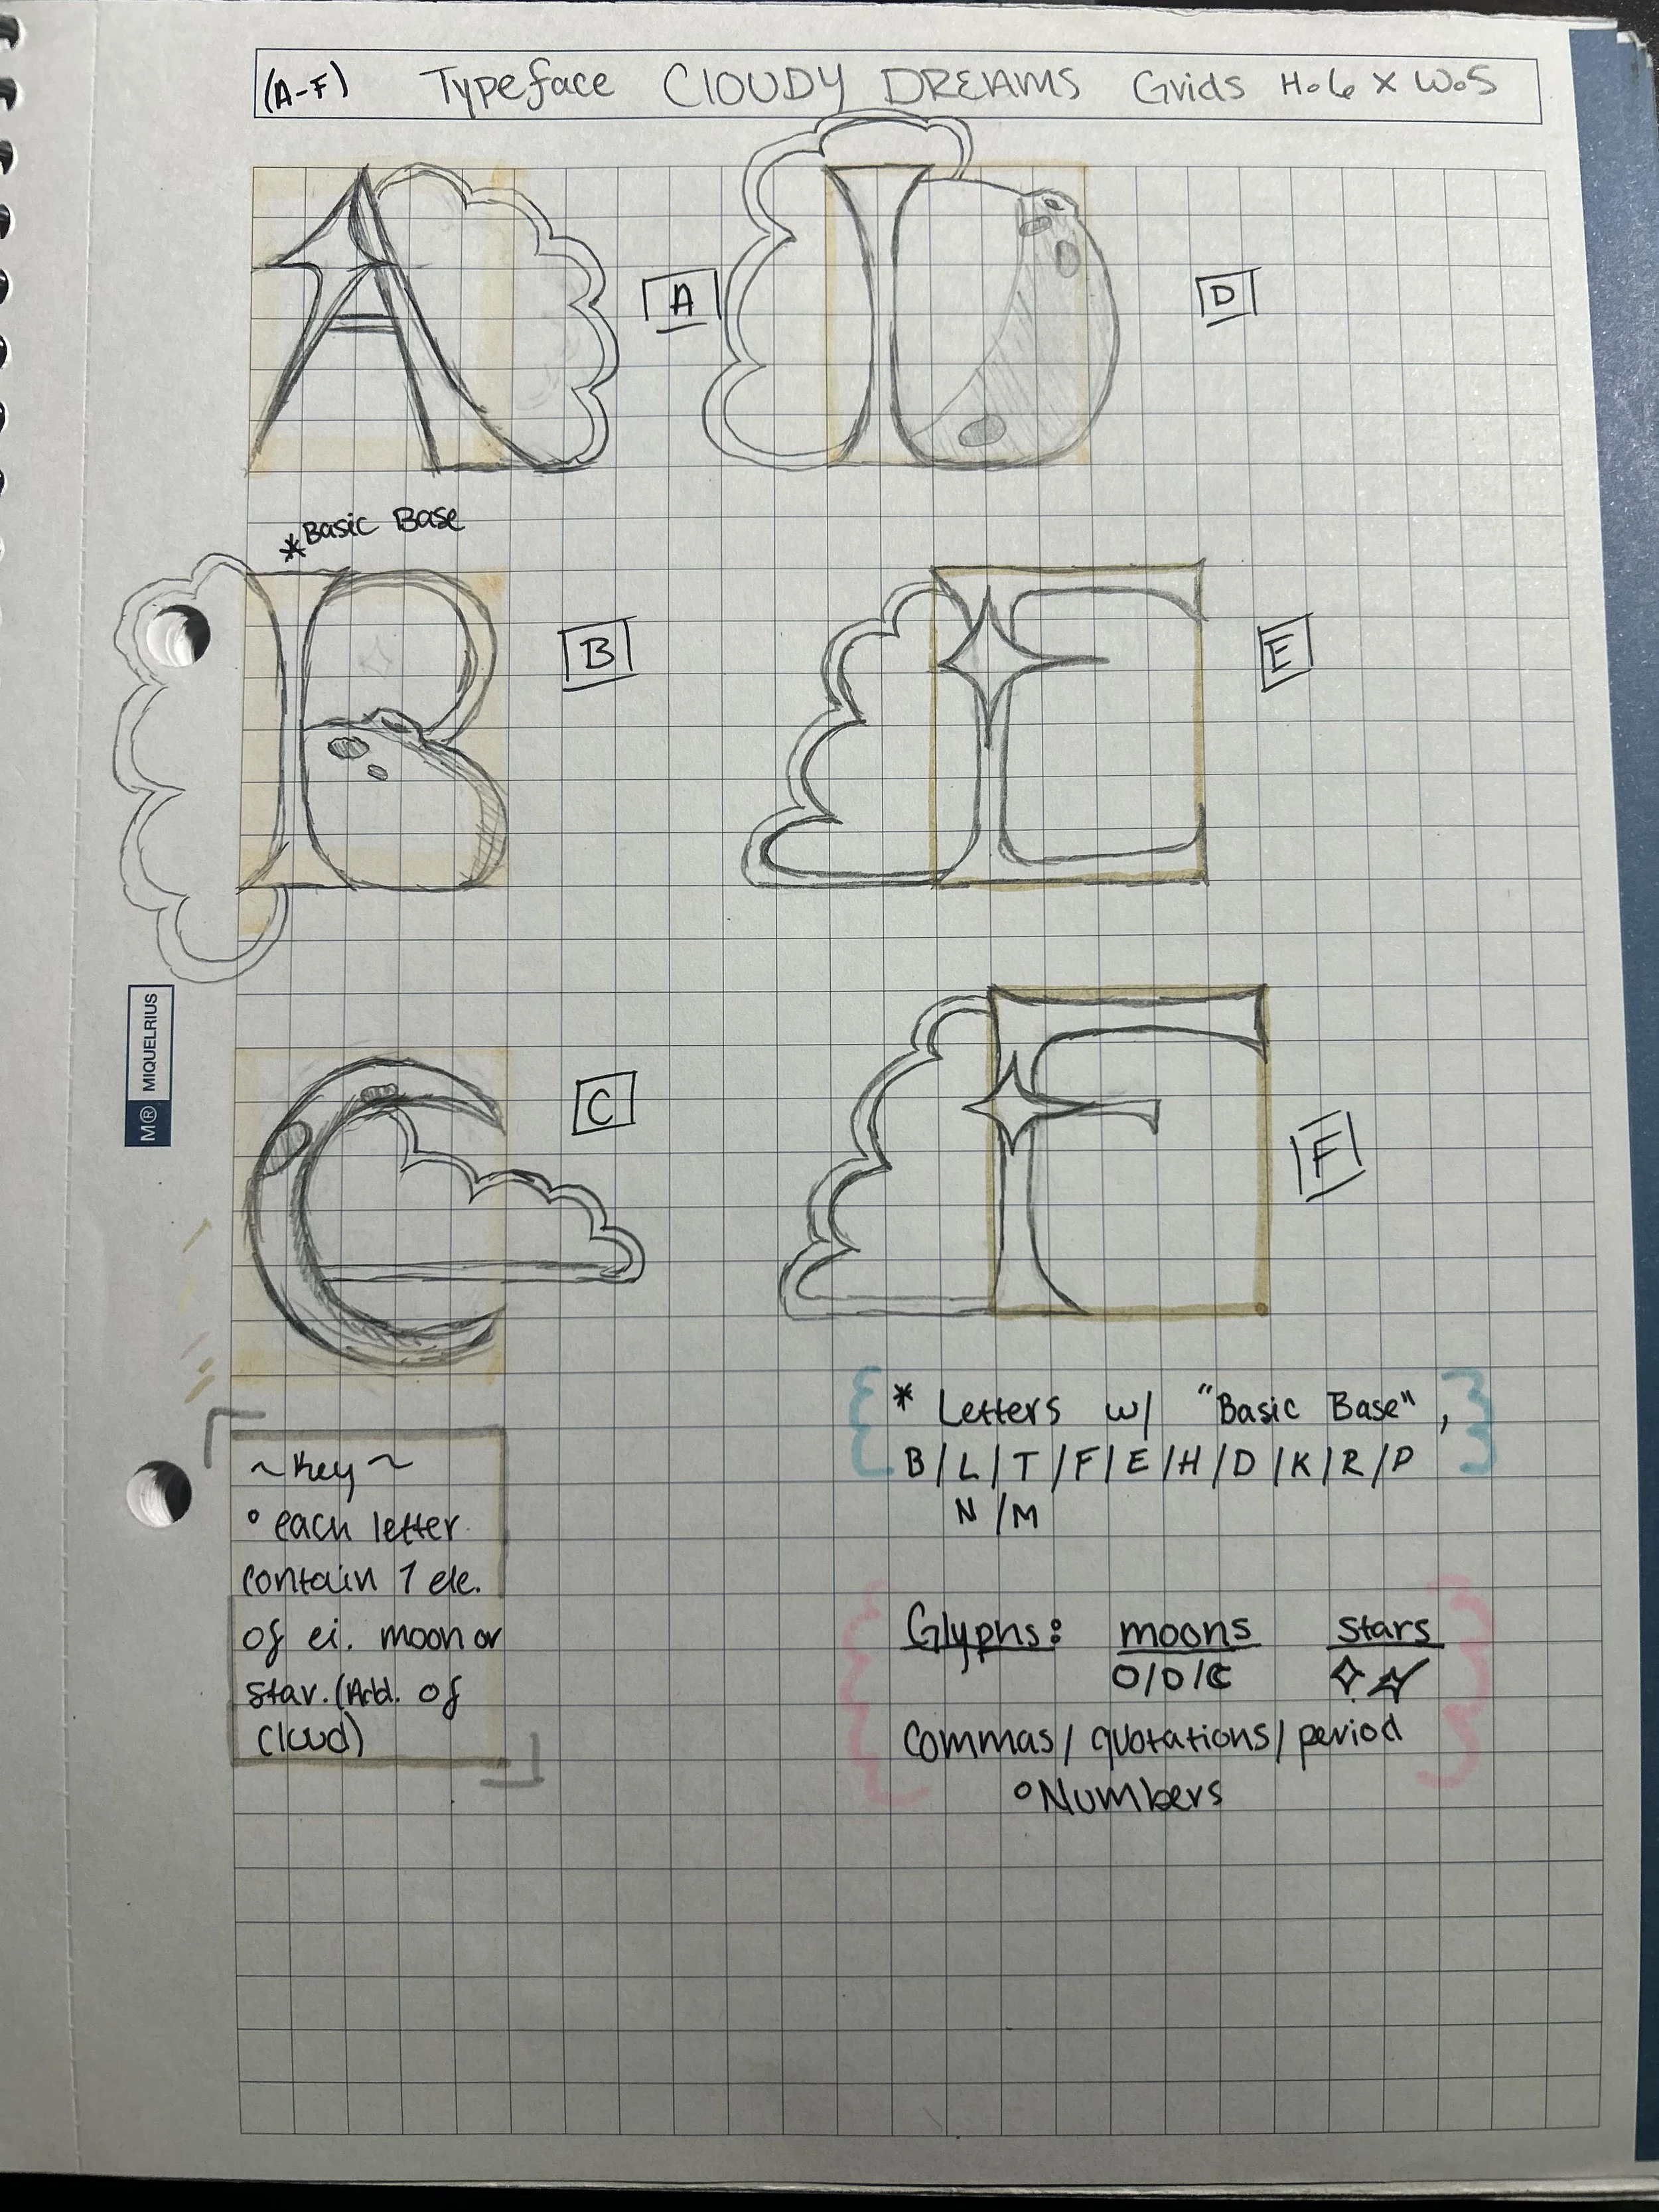 (A-F) Typeface CLOUDY DREAMS Grids H.6 X W.5
A
D
*Basic Base
B
E
C
F
M® MIQUELRIUS
* Letters w/ "Basic Base",
B/L/T/F/E/H/D/K/R/P
N/M
~Key~
° each letter
contain 1 ele.
of ei. moon or
star. (Add. of
cloud)
Glyphs: moons stars
O/D/C
Commas/quotations/period
°Numbers